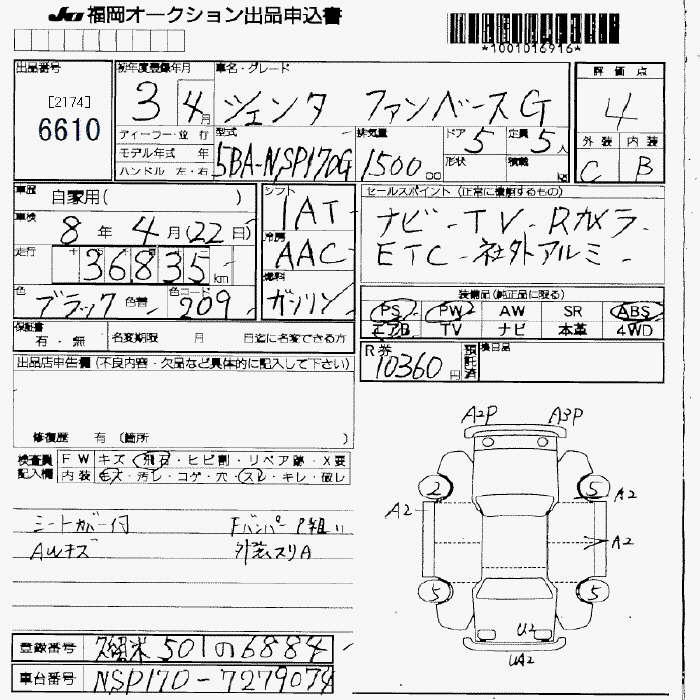 JU 福岡オークション出品申込書
*1001016916*
出品番号
[2174]
6610
初年度登録年月
3 4月
車名・グレード
シエンタ ファンベースG
評価点
4
外装 内装
C B
ディーラー・並行
モデル年式 年
ハンドル 左・右
型式
5BA-NSP170G
排気量
1500 cc
ドア
5
定員
5人
形状
積載 kg
車歴
自家用( )
車検
8年 4月(22日)
走行
36835 km
色
ブラック 色替
色コード
209
シフト
IAT
冷房
AAC
燃料
ガソリン
セールスポイント(正常に機能するもの)
ナビ - TV - Rカメラ -
ETC - 社外アルミ -
装備品(純正品に限る)
PS PW AW SR ABS
エアB TV ナビ 本革 4WD
保証書
有・無
名変期限 月 日迄に名変できる方
R券
10360円
預託済
後日品
出品店申告欄(不良内容・欠品など具体的に記入して下さい)
修復歴 有 (箇所 )
検査員記入欄
FW キズ・飛石・ヒビ割・リペア跡・X要
内装 キズ・汚レ・コゲ・穴・スレ・キレ・破レ
シートカバー付 Fバンパー P粗い
AWキズ 外装スリA
A2P A3P
2 5 A2
A2 A2
5 5
U2
UA2
登録番号 久留米 501 の 6884
車台番号 NSP170-7279074